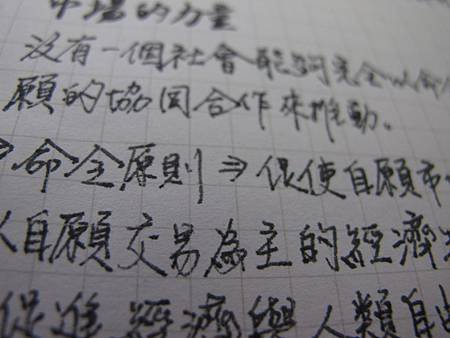 市場的力量
沒有一個社會能夠完全以命
願的協同合作來推動。
⇒命令原則⇒促使自願市
自願交易為主的經濟
促進經濟與人類自由